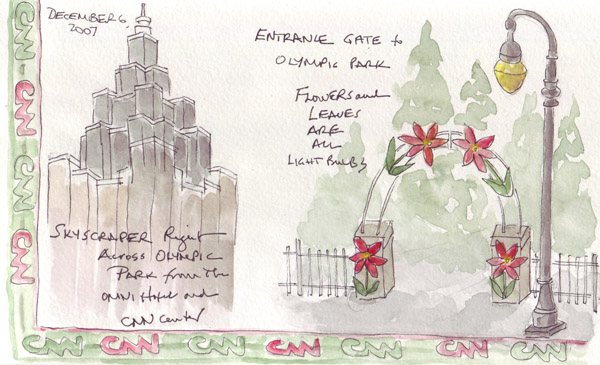 DECEMBER 6,
2007
ENTRANCE GATE to
OLYMPIC PARK
FLOWERS and
LEAVES
ARE
ALL
LIGHT BULBS
SKYSCRAPER Right
ACROSS OLYMPIC
PARK from The
OMNI Hotel and
CNN Center
CNN
CNN
CNN
CNN
CNN
CNN
CNN
CNN
CNN
CNN
CNN
CNN